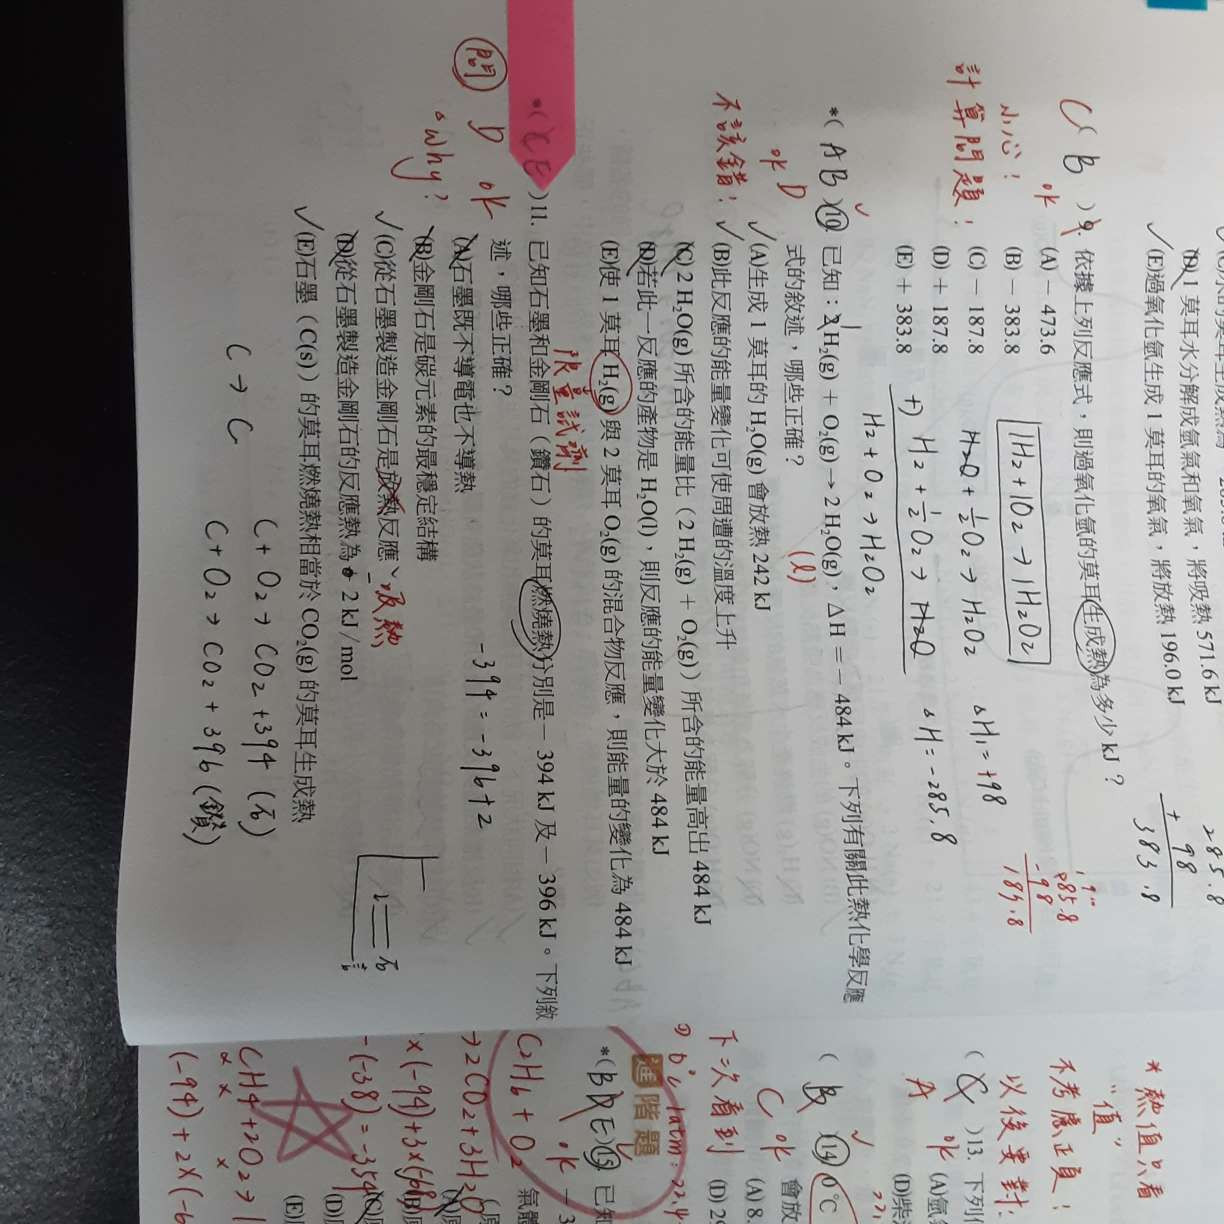 (D) 1 莫耳水分解成氫氣和氧氣，將吸熱 571.6 kJ
(E)過氧化氫生成 1 莫耳的氧氣，將放熱 196.0 kJ
285.8
+ 98
383.8
( B ) 9. 依據上列反應式，則過氧化氫的莫耳生成熱為多少 kJ？
ok
小心！
計算問題！
(A) − 473.6
(B) − 383.8
(C) − 187.8
(D) + 187.8
(E) + 383.8
1H₂ + 1O₂ → 1H₂O₂
H₂O + ½O₂ → H₂O₂ ΔH₁ = +98
+) H₂ + ½O₂ → H₂O ΔH = -285.8
H₂ + O₂ → H₂O₂
285.8
-98
187.8
*( AB ) 10. 已知：2 H₂(g) + O₂(g) → 2 H₂O(g)，ΔH = − 484 kJ。下列有關此熱化學反應
式的敘述，哪些正確？
(l)
ok D
不該錯！
(A)生成 1 莫耳的 H₂O(g) 會放熱 242 kJ
(B)此反應的能量變化可使周遭的溫度上升
(C) 2 H₂O(g) 所含的能量比（2 H₂(g) + O₂(g)）所含的能量高出 484 kJ
(D)若此一反應的產物是 H₂O(l)，則反應的能量變化大於 484 kJ
(E)使 1 莫耳 H₂(g) 與 2 莫耳 O₂(g) 的混合物反應，則能量的變化為 484 kJ
限量試劑
*( CE ) 11. 已知石墨和金剛石（鑽石）的莫耳燃燒熱分別是 − 394 kJ 及 − 396 kJ。下列敘
述，哪些正確？
問 D ok
why?
-394 = -396 + 2
(A)石墨既不導電也不導熱
(B)金剛石是碳元素的最穩定結構
(C)從石墨製造金剛石是放熱反應
吸熱
(D)從石墨製造金剛石的反應熱為 + 2 kJ / mol
(E)石墨（C(s)）的莫耳燃燒熱相當於 CO₂(g) 的莫耳生成熱
C → C
C + O₂ → CO₂ + 394 (石)
C + O₂ → CO₂ + 396 (鑽)
* 熱值只看
"值"
不考慮正負！
以後要對.
)13. 下列
A ok
(A)氫
(D)柴
( B ) 14. 0 ℃
會放
C ok
(A) 8.
(D) 29
下次看到
0℃ 1atm: 22.4
進階題
*(BDE) 15. 已知
ok
− 3
氣體
C₂H₆ + O₂
→ 2CO₂ + 3H₂O
×(-94) + 3×(-68)
-(-38) = -354
CH₄ + 2O₂ → 1
(-94) + 2×(-6
(D)
(E)